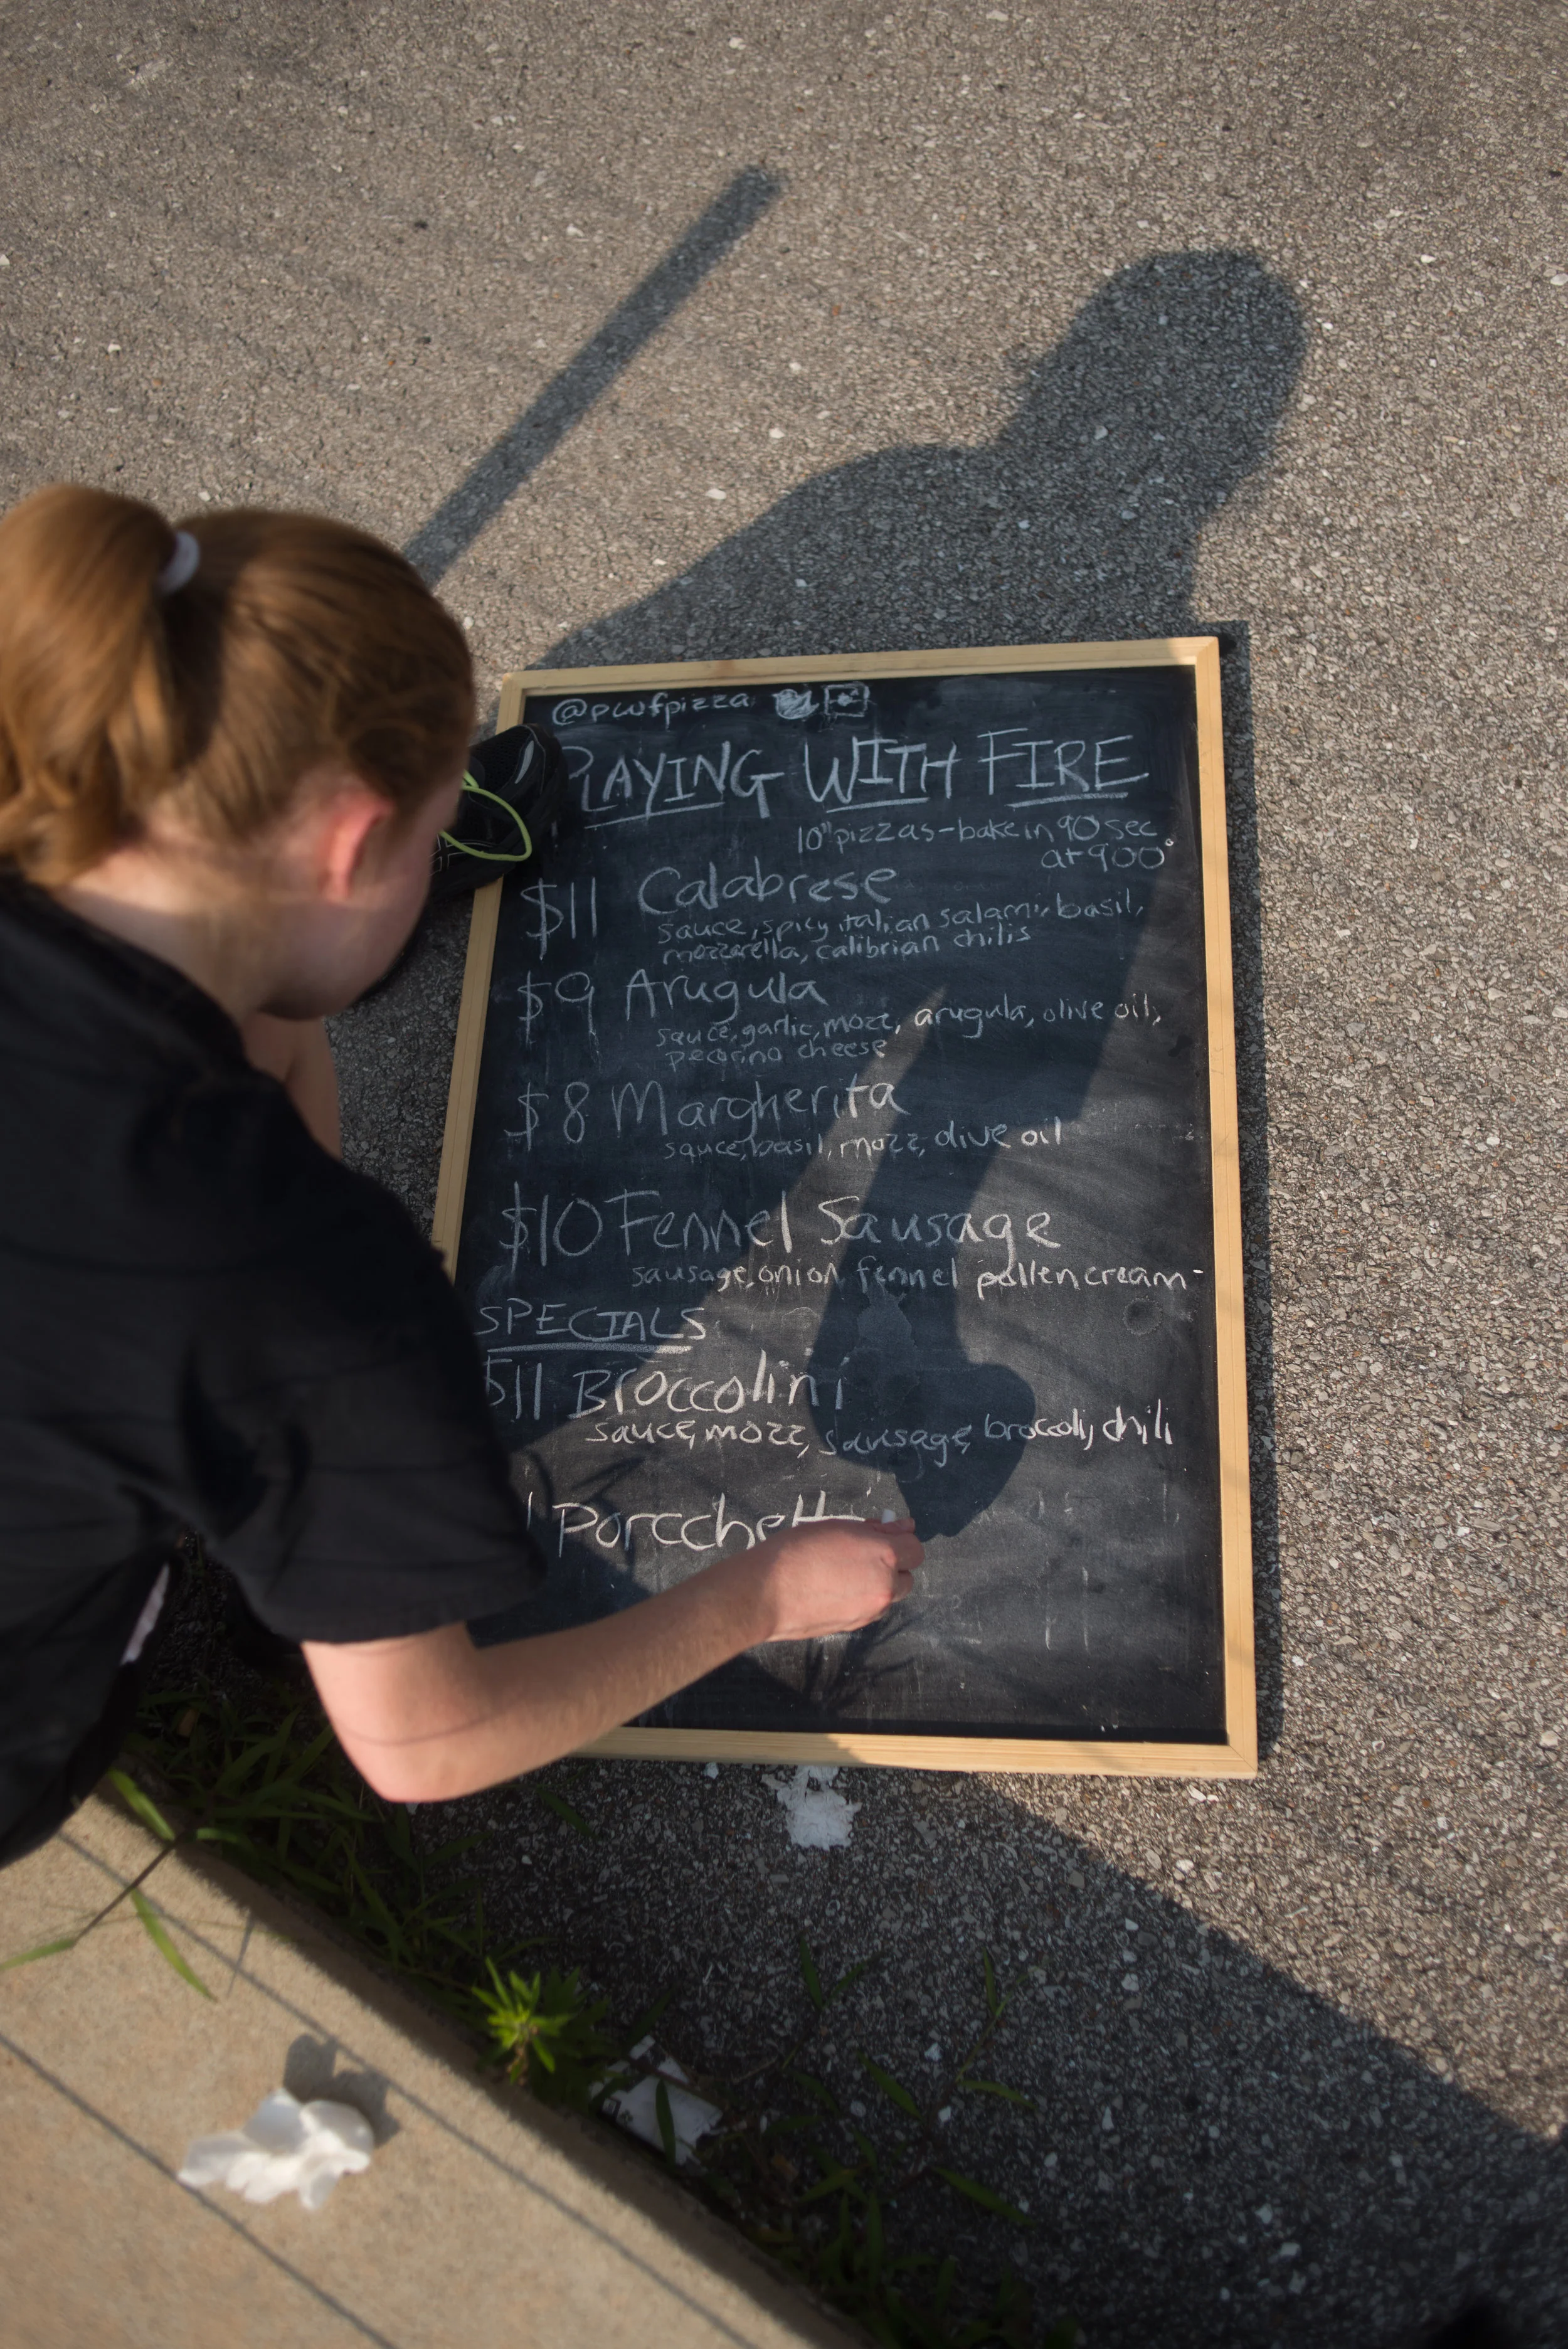 @pwfpizza
PLAYING WITH FIRE
10" pizzas - bake in 90 sec
at 900°
$11 Calabrese
sauce, spicy italian salami, basil,
mozzarella, calibrian chilis
$9 Arugula
sauce, garlic, mozz, arugula, olive oil,
pecorino cheese
$8 Margherita
sauce, basil, mozz, olive oil
$10 Fennel Sausage
sausage, onion, fennel pollen cream
SPECIALS
$11 Broccolini
sauce, mozz, sausage, broccoli, chili
Porcchett